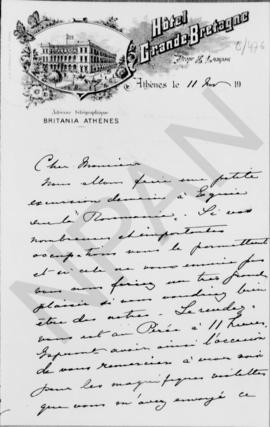 Hôtel
Grande Bretagne
Prop. E. Lampsa
Athènes le 11 19
Adresse télégraphique
BRITANIA ATHÈNES
Cher Monsieur
Nous allons faire une petite
excursion demain à Egine
sur le Roumania. Si vos
nombreuses et importantes
occupations vous le permettent
et si cela ne vous ennuie pas
vous nous feriez un très grand
plaisir si vous vouliez bien
être des nôtres. Le rendez
vous est au Pirée à 11 heures.
avoir ainsi l'occasion
de vous remercier à vive voix
pour les magnifiques violettes
que vous m'avez envoyé ce
NPAN